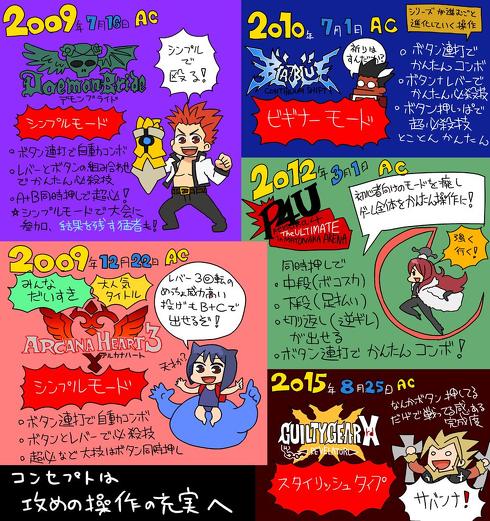 2009年7月16日 AC
Daemon Bride
デモンブライド
シンプルで
殴る!
シンプルモード
・ボタン連打で自動コンボ
・レバーとボタンの組み合わせ
でかんたん必殺技
・A+B同時押しで超必!
☆シンプルモードで大会に
参加、結果を残す猛者も!
2009年12月22日 AC
みんな
だいすき
大人気
タイトル
ARCANA HEART 3
アルカナハート
レバー3回転の
めっちゃ威力高い
投げもB+Cで
出せるぞ!
天才か?
シンプルモード
・ボタン連打で自動コンボ
・ボタンとレバーで必殺技
・超必など大技はボタン同時押し
コンセプトは
攻めの操作の充実へ
2010年7月1日 AC
シリーズが進むごと
進化していく操作
BLAZBLUE
CONTINUUM SHIFT
祈りは
すんだか?
ビギナーモード
・ボタン連打で
かんたんコンボ
・ボタン+レバーで
かんたん必殺技
・ボタン押しっぱで
超必殺技
とことんかんたん
2012年3月1日 AC
P4U
PERSONA4
THE ULTIMATE
IN MAYONAKA ARENA
初心者向けのモードを廃し
ゲーム全体をかんたん操作に!
強く
行く!
同時押しで
・中段(ボコスカ)
・下段(足払い)
・切り返し(逆ギレ)
が出せる
・ボタン連打でかんたんコンボ!
2015年8月25日 AC
GUILTY GEAR Xrd
REVELATOR
なんかボタン押してる
だけで戦ってる感ある
完成度
スタイリッシュタイプ
サバンナ!